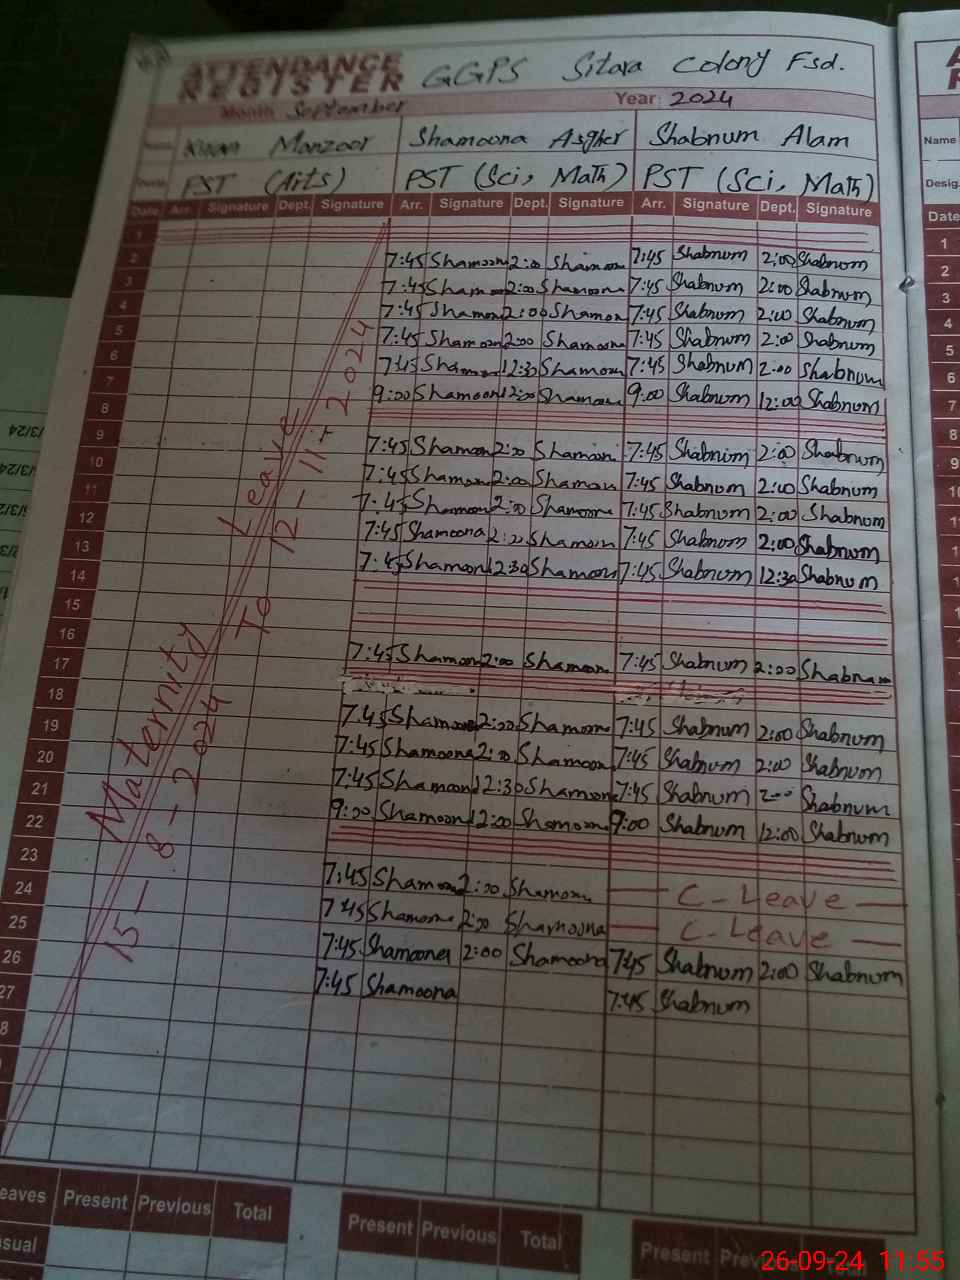 ATTENDANCE REGISTER GGPS Sitara Colony Fsd.
Month September Year: 2024
Name Kiran Manzoor Shamoona Asgher Shabnum Alam
PST (Arts) PST (Sci, Math) PST (Sci, Math)
Date Arr. Signature Dept. Signature Arr. Signature Dept. Signature Arr. Signature Dept. Signature
1
2 7:45 Shamoona 2:00 Shamoona 7:45 Shabnum 2:00 Shabnum
3 7:45 Shamoona 2:00 Shamoona 7:45 Shabnum 2:00 Shabnum
4 7:45 Shamoona 2:00 Shamoona 7:45 Shabnum 2:00 Shabnum
5 7:45 Shamoona 2:00 Shamoona 7:45 Shabnum 2:00 Shabnum
6 7:45 Shamoona 12:30 Shamoona 7:45 Shabnum 2:00 Shabnum
7 9:00 Shamoona 12:00 Shamoona 9:00 Shabnum 12:00 Shabnum
8
9 7:45 Shamoona 2:00 Shamoona 7:45 Shabnum 2:00 Shabnum
10 7:45 Shamoona 2:00 Shamoona 7:45 Shabnum 2:00 Shabnum
11 7:45 Shamoona 2:00 Shamoona 7:45 Shabnum 2:00 Shabnum
12 7:45 Shamoona 2:00 Shamoona 7:45 Shabnum 2:00 Shabnum
13 7:45 Shamoona 12:30 Shamoona 7:45 Shabnum 12:30 Shabnum
14
15
16 7:45 Shamoona 2:00 Shamoona 7:45 Shabnum 2:00 Shabnum
17
18 7:45 Shamoona 2:00 Shamoona 7:45 Shabnum 2:00 Shabnum
19 7:45 Shamoona 2:00 Shamoona 7:45 Shabnum 2:00 Shabnum
20 7:45 Shamoona 12:30 Shamoona 7:45 Shabnum 2:00 Shabnum
21 9:00 Shamoona 12:00 Shamoona 9:00 Shabnum 12:00 Shabnum
22
23 7:45 Shamoona 2:00 Shamoona — C-Leave —
24 7:45 Shamoona 2:00 Shamoona — C-Leave —
25 7:45 Shamoona 2:00 Shamoona 7:45 Shabnum 2:00 Shabnum
26 7:45 Shamoona 7:45 Shabnum
27
Maternity Leave
15-8-2024 To 12-11-2024
Leaves Present Previous Total Present Previous Total Present
Casual
Name
Desig.
Date
1
2
3
4
5
6
7
8
9
10
26-09-24 11:55